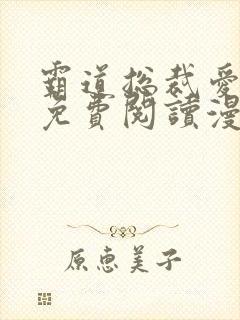 霸道总裁爱
免費閱讀漫
原恵美子